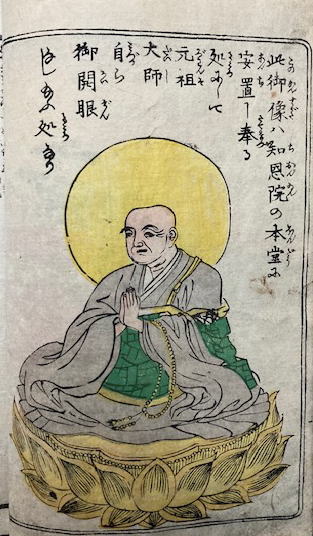 此御像ハ知恩院の本堂に
安置し奉る
処にして
元祖
大師
自ら
御開眼
処なり